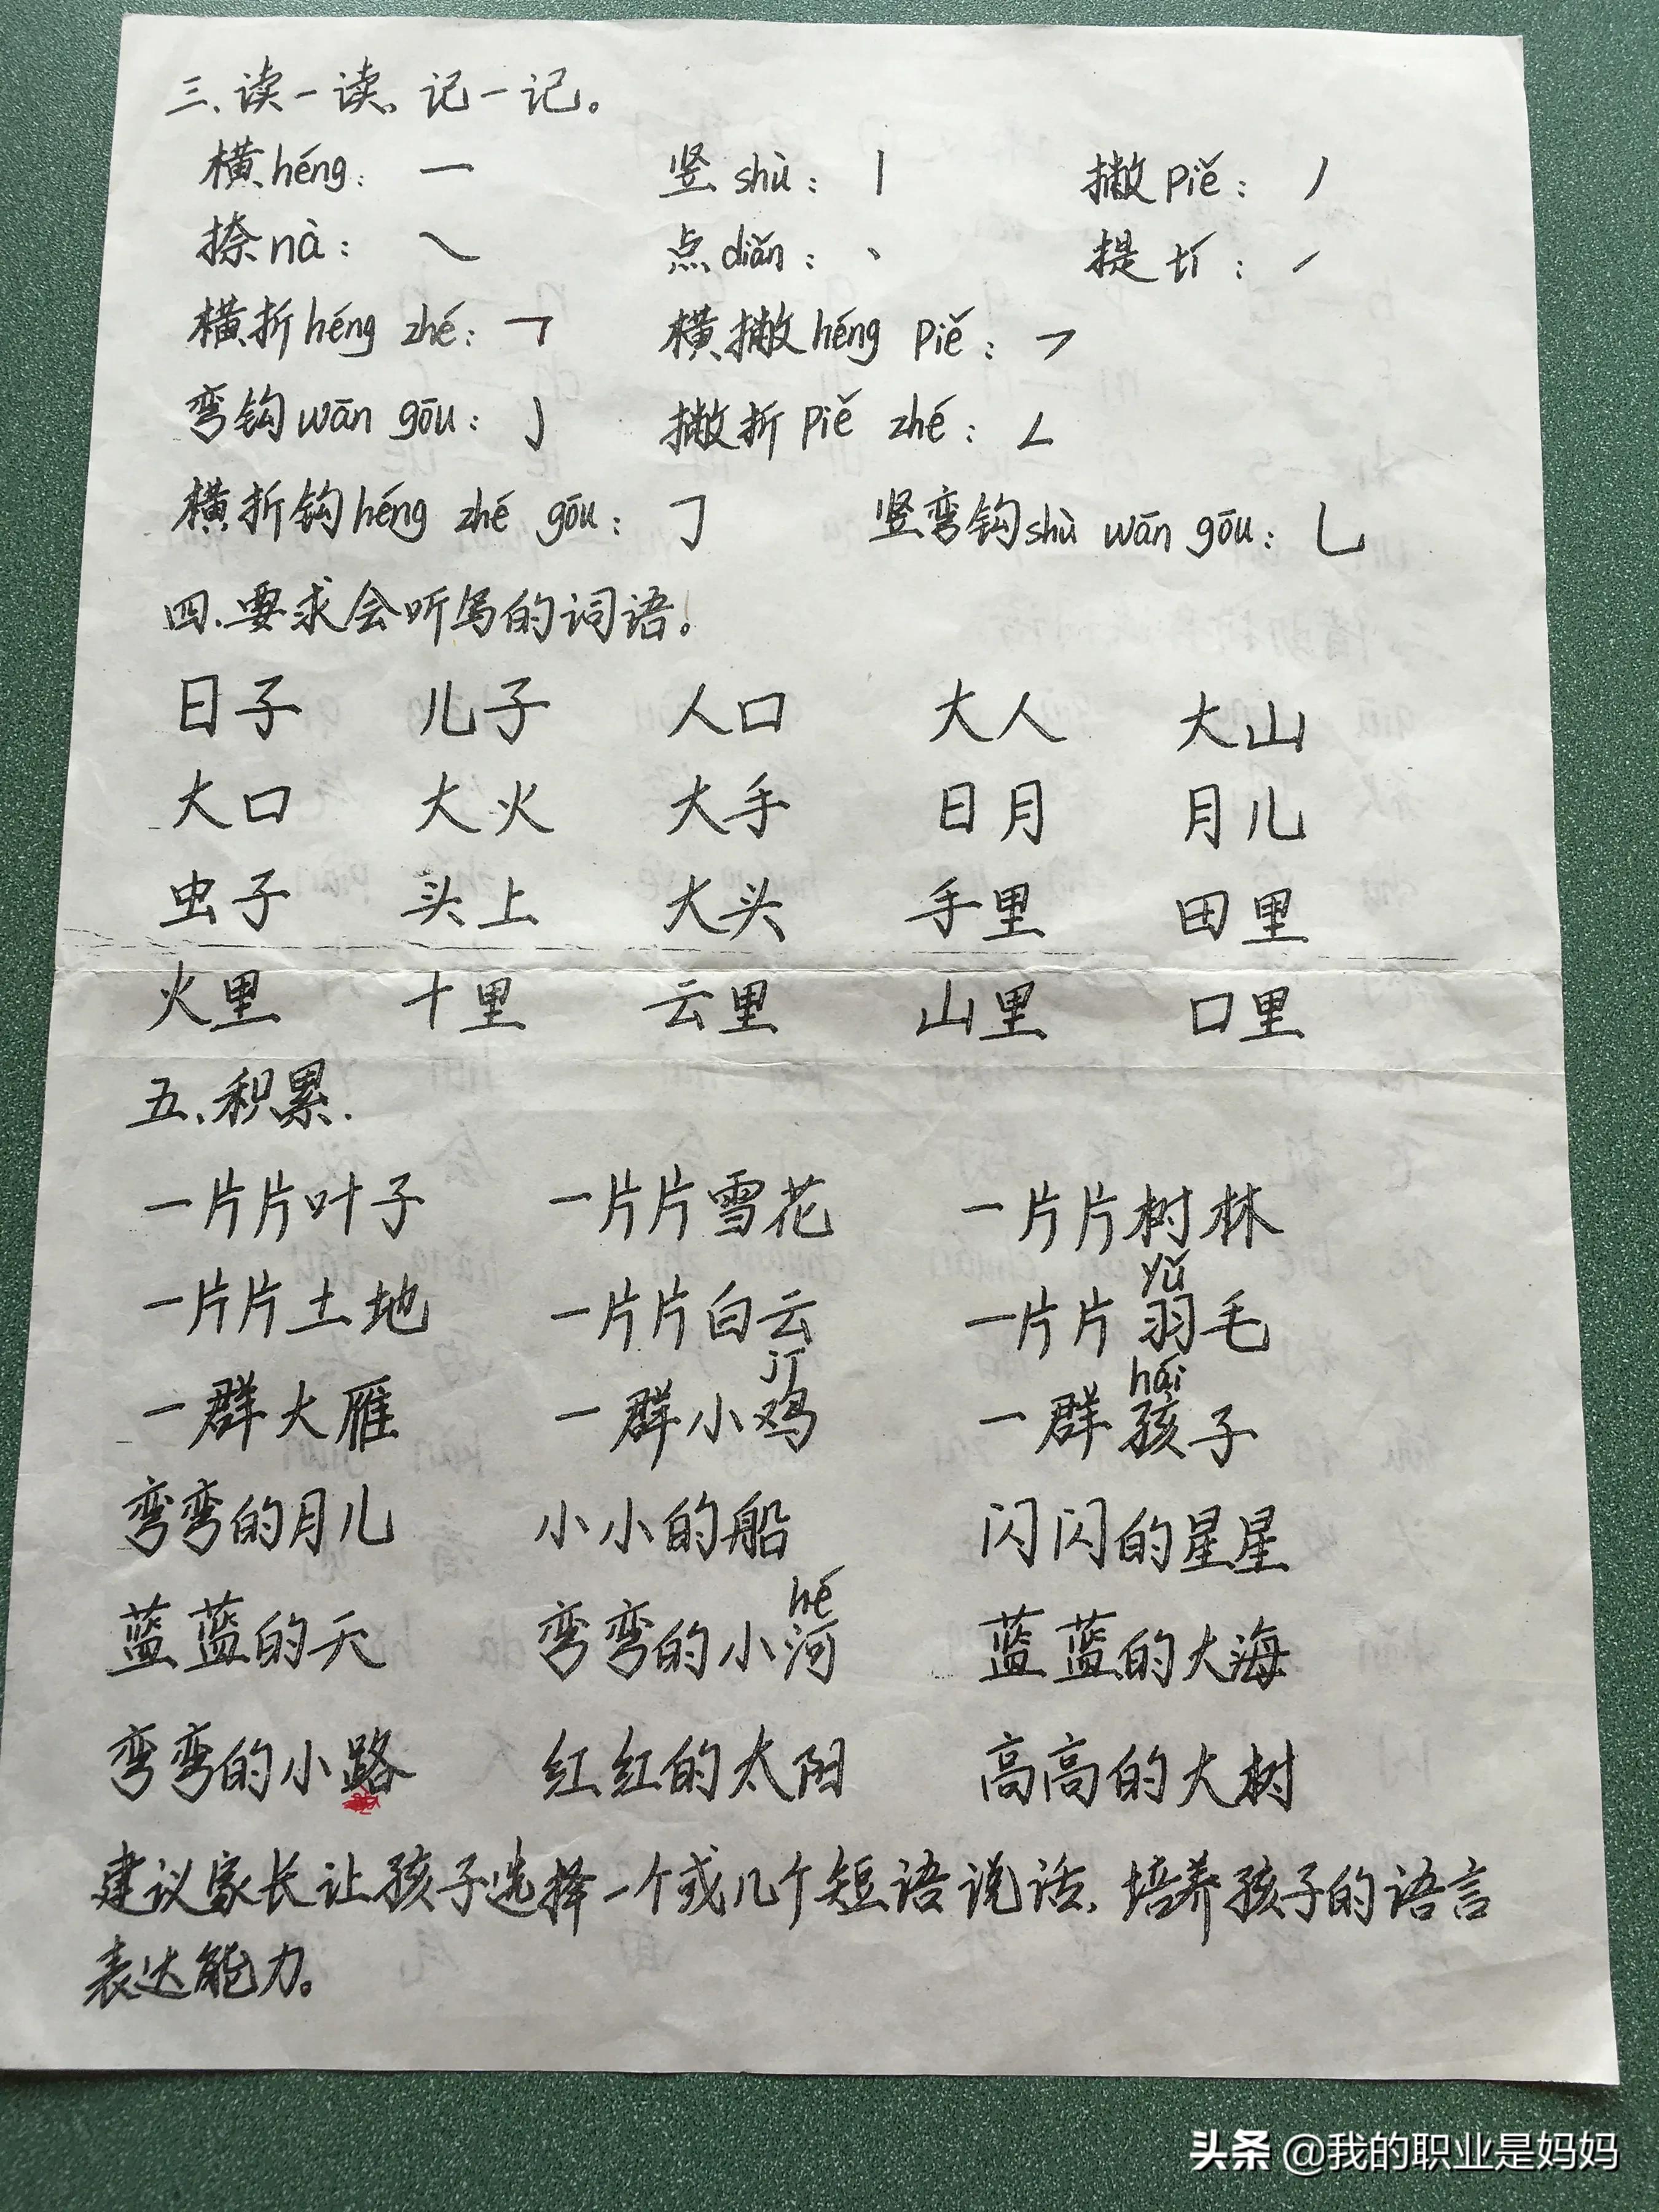 三、读一读、记一记。
横héng： 一 竖shù： 丨 撇piě： 丿
捺nà： ㇏ 点diǎn： 丶 提tí： ㇀
横折héng zhé： ㇕ 横撇héng piě： ㇇
弯钩wān gōu： ㇁ 撇折piě zhé： ㇜
横折钩héng zhé gōu： ㇆ 竖弯钩shù wān gōu： ㇟
四、要求会听写的词语。
日子 儿子 人口 大人 大山
大口 大火 大手 日月 月儿
虫子 头上 大头 手里 田里
火里 十里 云里 山里 口里
五、积累.
一片片叶子 一片片雪花 一片片树林
yǔ
一片片土地 一片片白云 一片片羽毛
jī hái
一群大雁 一群小鸡 一群孩子
弯弯的月儿 小小的船 闪闪的星星
hé
蓝蓝的天 弯弯的小河 蓝蓝的大海
弯弯的小路 红红的太阳 高高的大树
建议家长让孩子选择一个或几个短语说话，培养孩子的语言
表达能力。
头条 @我的职业是妈妈